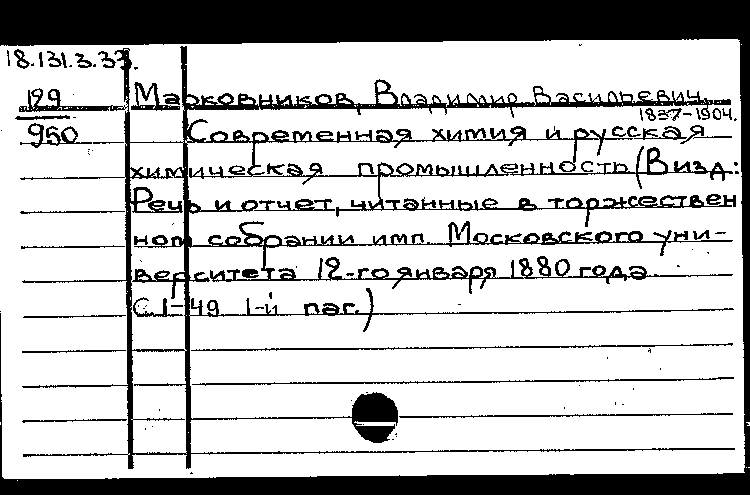 18.131.3.33.
129
950
Марковников, Владимир Васильевич,
1837-1904.
Современная химия и русская
химическая промышленность (В изд.:
Речь и отчет, читанные в торжествен
ном собрании имп. Московского уни-
верситета 12-го января 1880 года
С. 1-49 1-й паг.)